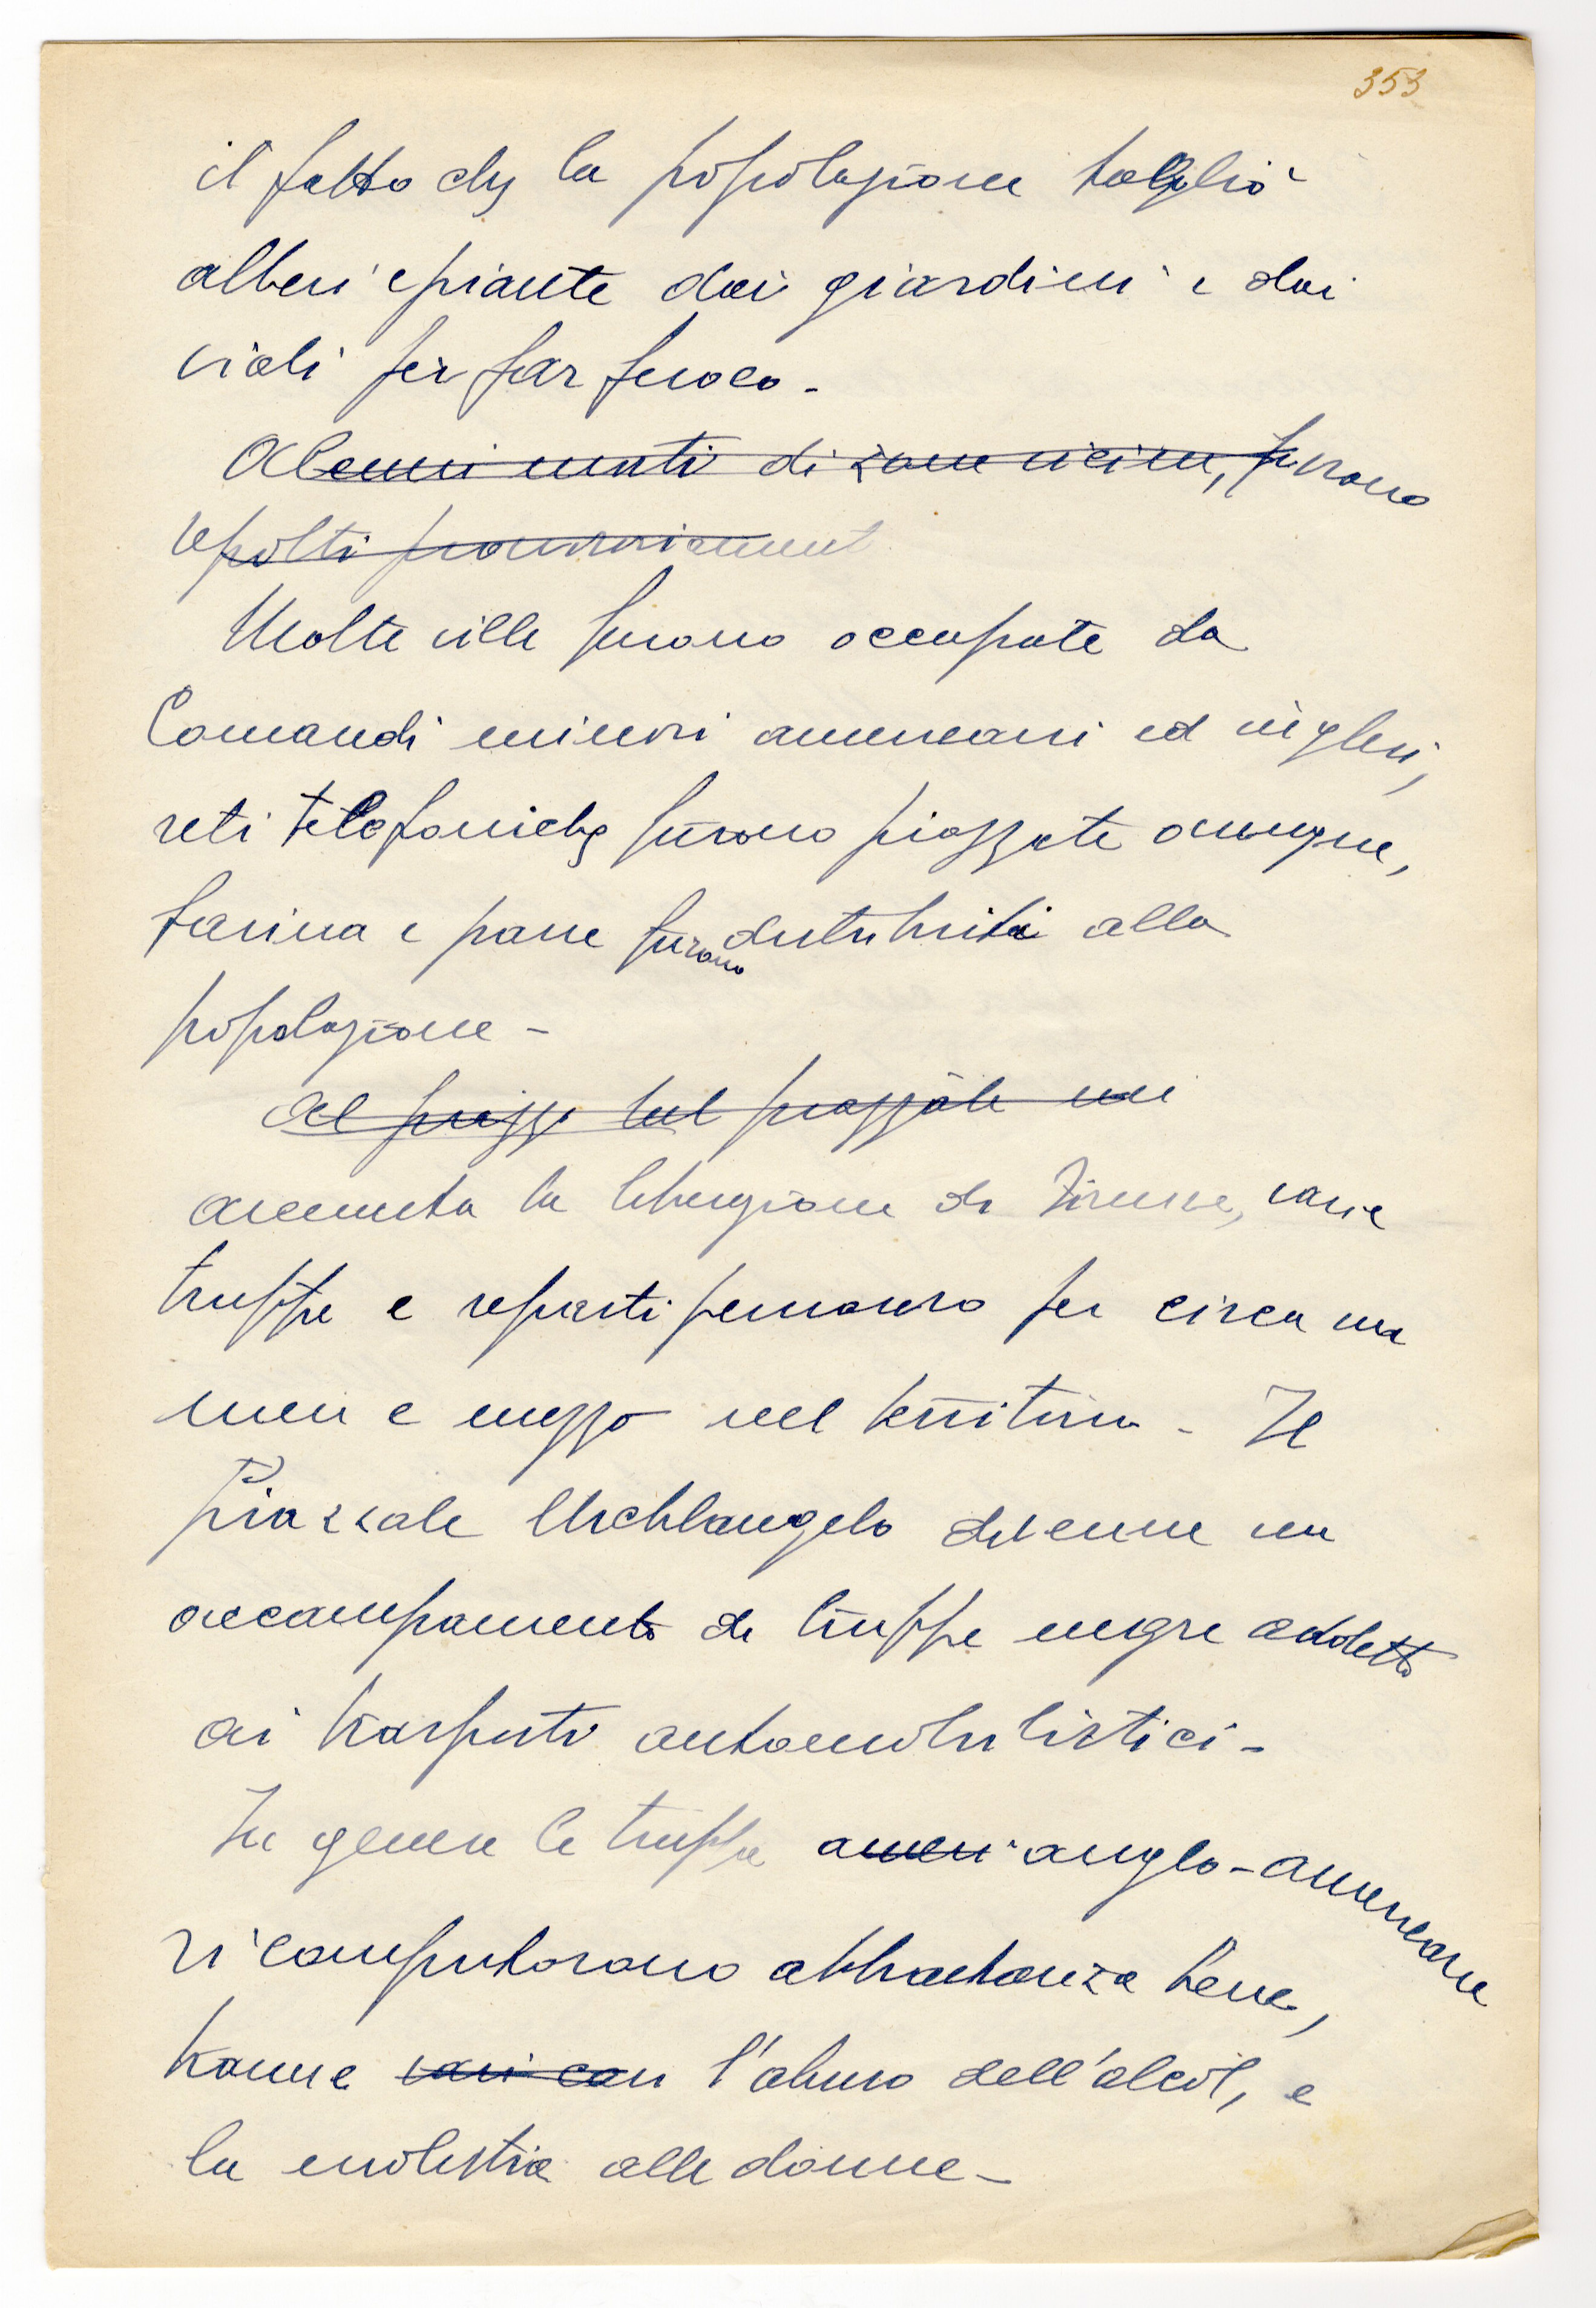 353
il fatto che la popolazione tagliò
alberi e piante dai giardini e dai
viali per far fuoco -
Alcuni morti di zone vicine, furono
sepolti provvisoriament
Molte ville furono occupate da
Comandi minori americani ed inglesi,
reti telefoniche furono piazzate ovunque,
farina e pane furono distribuiti alla
popolazione -
Al piazz sul piazzale mi
avvenuta la liberazione di Firenze, varie
truppe e reparti permasero per circa un
mese e mezzo nel territorio - Il
Piazzale Michelangelo divenne un
accampamento di truppe negre addette
ai trasporti automobilistici -
In genere le truppe ameri anglo-americane
si comportarono abbastanza bene,
tranne vari con l'abuso dell'alcol, e
la molestia alle donne -